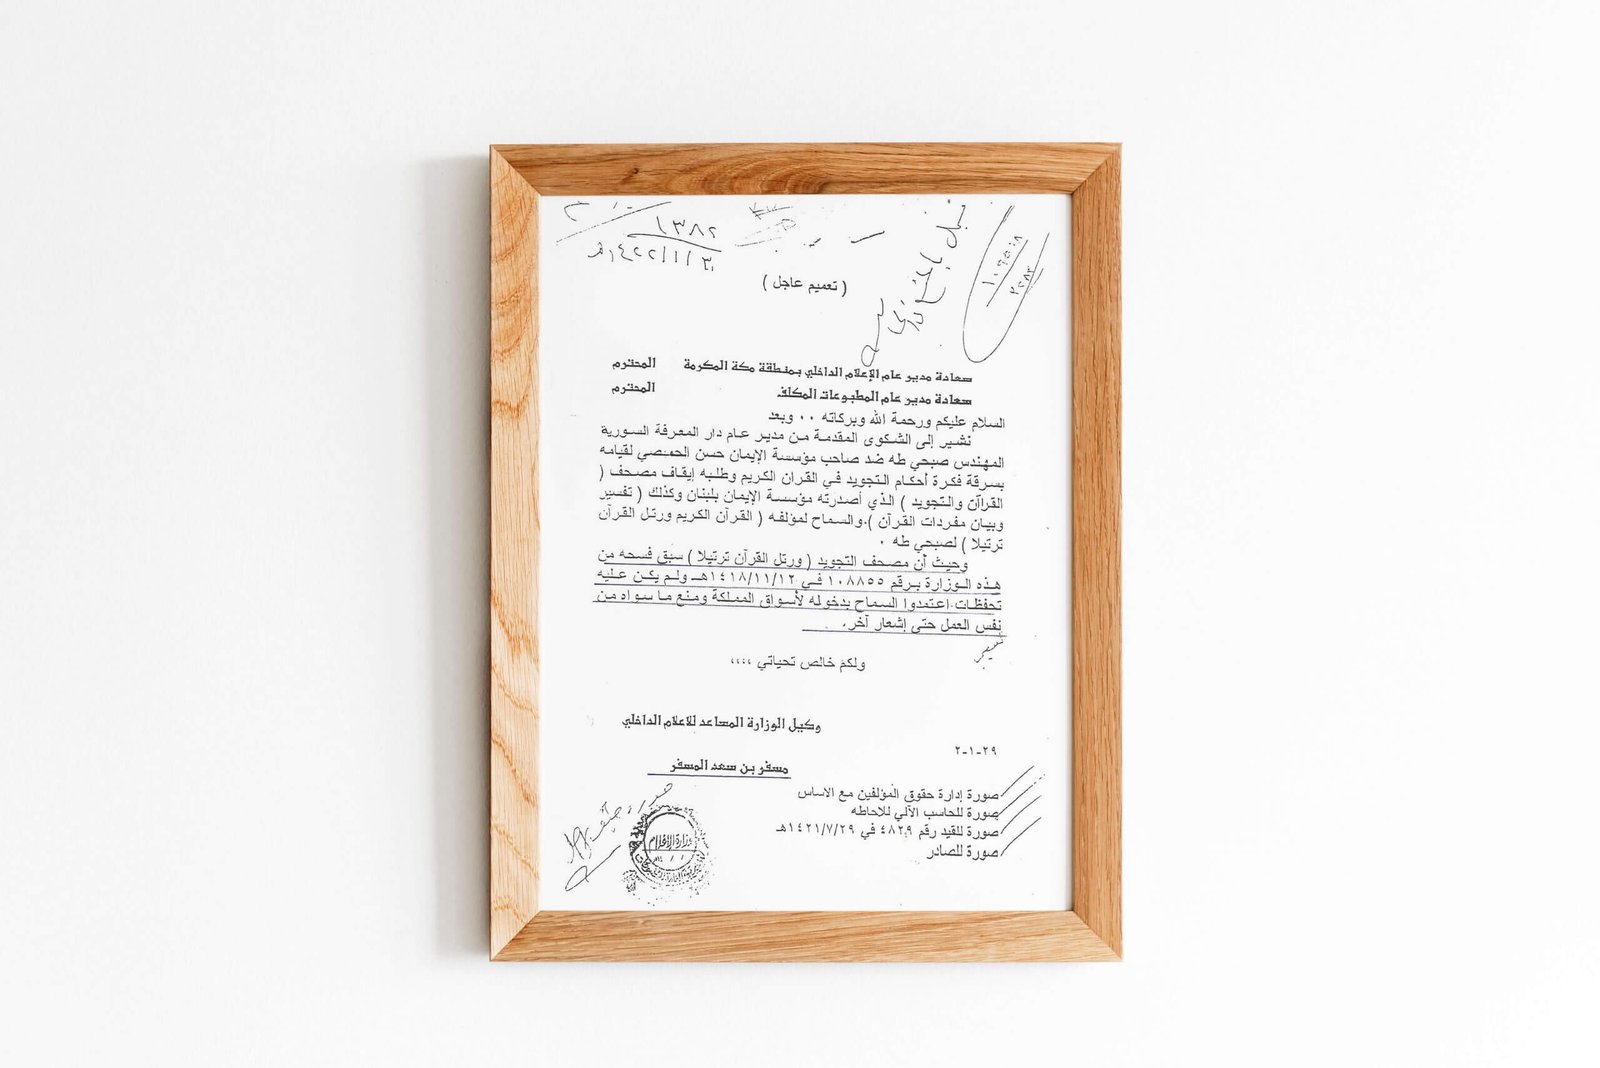 ١٣٨٢
١٤٢٢/١/٣٠هـ
١٠٦٥٠١٨
٢٢٨٢
( تعميم عاجل )
سعادة مدير عام الإعلام الداخلي بمنطقة مكة المكرمة المحترم
سعادة مدير عام المطبوعات المكلف المحترم
السلام عليكم ورحمة الله وبركاته ٠٠ وبعد
نشير إلى الشكوى المقدمة من مدير عام دار المعرفة السورية
المهندس صبحي طه ضد صاحب مؤسسة الإيمان حسن الحمصي لقيامه
بسرقة فكرة أحكام التجويد في القران الكريم وطلبه إيقاف مصحف (
القرآن والتجويد ) الذي أصدرته مؤسسة الإيمان بلبنان وكذلك ( تفسير
وبيان مفردات القرآن ).والسماح لمؤلفه ( القرآن الكريم ورتل القرآن
ترتيلا ) لصبحي طه ٠
وحيث أن مصحف التجويد ( ورتل القرآن ترتيلا ) سبق فسحه من
هذه الوزارة برقم ١٠٨٨٥٥ في ١٤١٨/١١/١٢هـ ولم يكن عليه
تحفظات اعتمدوا السماح بدخوله لأسواق المملكة ومنع ما سواه من
نفس العمل حتى إشعار آخر.
ولكم خالص تحياتي ،،،،
وكيل الوزارة المساعد للاعلام الداخلي
٢-١-٢٩
مسفر بن سعد المسفر
صورة إدارة حقوق المؤلفين مع الاساس
صورة للحاسب الآلي للاحاطه
صورة للقيد رقم ٤٨٢٩ في ١٤٢١/٧/٢٩هـ
صورة للصادر
وزارة الإعلام